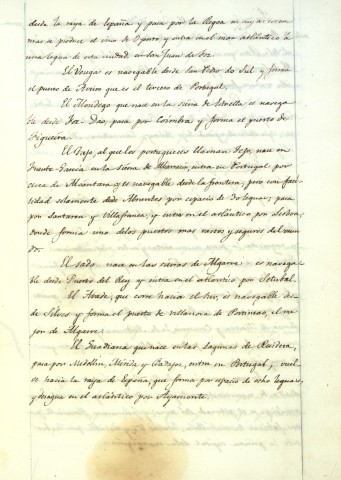 desde la raya de España y pasa por la Regoa en cuyas cerca
nias se produce el vino de Oporto y entra en el mar atlántico á
una legua de esta ciudad en San Juan de Foz.
El Vouga es navegable desde San Pedro do Sul y forma
el puerto de Aveiro que es el tercero de Portugal.
El Mondego que nace en la sierra de Estrella es navega
ble desde Foz-Dao, pasa por Coimbra y forma el puerto de
Figueira.
El Tajo, al que los portugueses llaman Tejo, nace en
Fuente García en la sierra de Albarracin, entra en Portugal por
cerca de Alcántara y es navegable desde la frontera, pero con faci
lidad solamente desde Abrantes por espacio de leguas; pasa
por Santaren y Villafranca, y entra en el atlántico por Lisboa,
donde forma uno de los puertos mas vastos y seguros del mun
do.
El Sado nace en las sierras de Algarve es navega
ble desde Puerto del Rey y entra en el atlántico por Setubal.
El Arade, que corre hacia el Sur, es navegable des
de Silves y forma el puerto de villanova de Portimao, el me
jor de Algarve.
El Guadiana que nace en las lagunas de Ruidera,
pasa por Medellin, Mérida y Badajoz, entra en Portugal, vuel
ve hacia la raya de España, que forma por espacio de ocho leguas,
y desagua en el atlántico por Ayamonte.